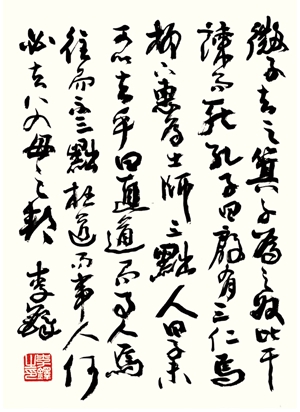 微子去之箕子為之奴比干
諫而死孔子曰殷有三仁焉
柳下惠為士師三黜人曰子未
可以去乎曰直道而事人焉
往而不三黜枉道而事人何
必去父母之邦 李鐸